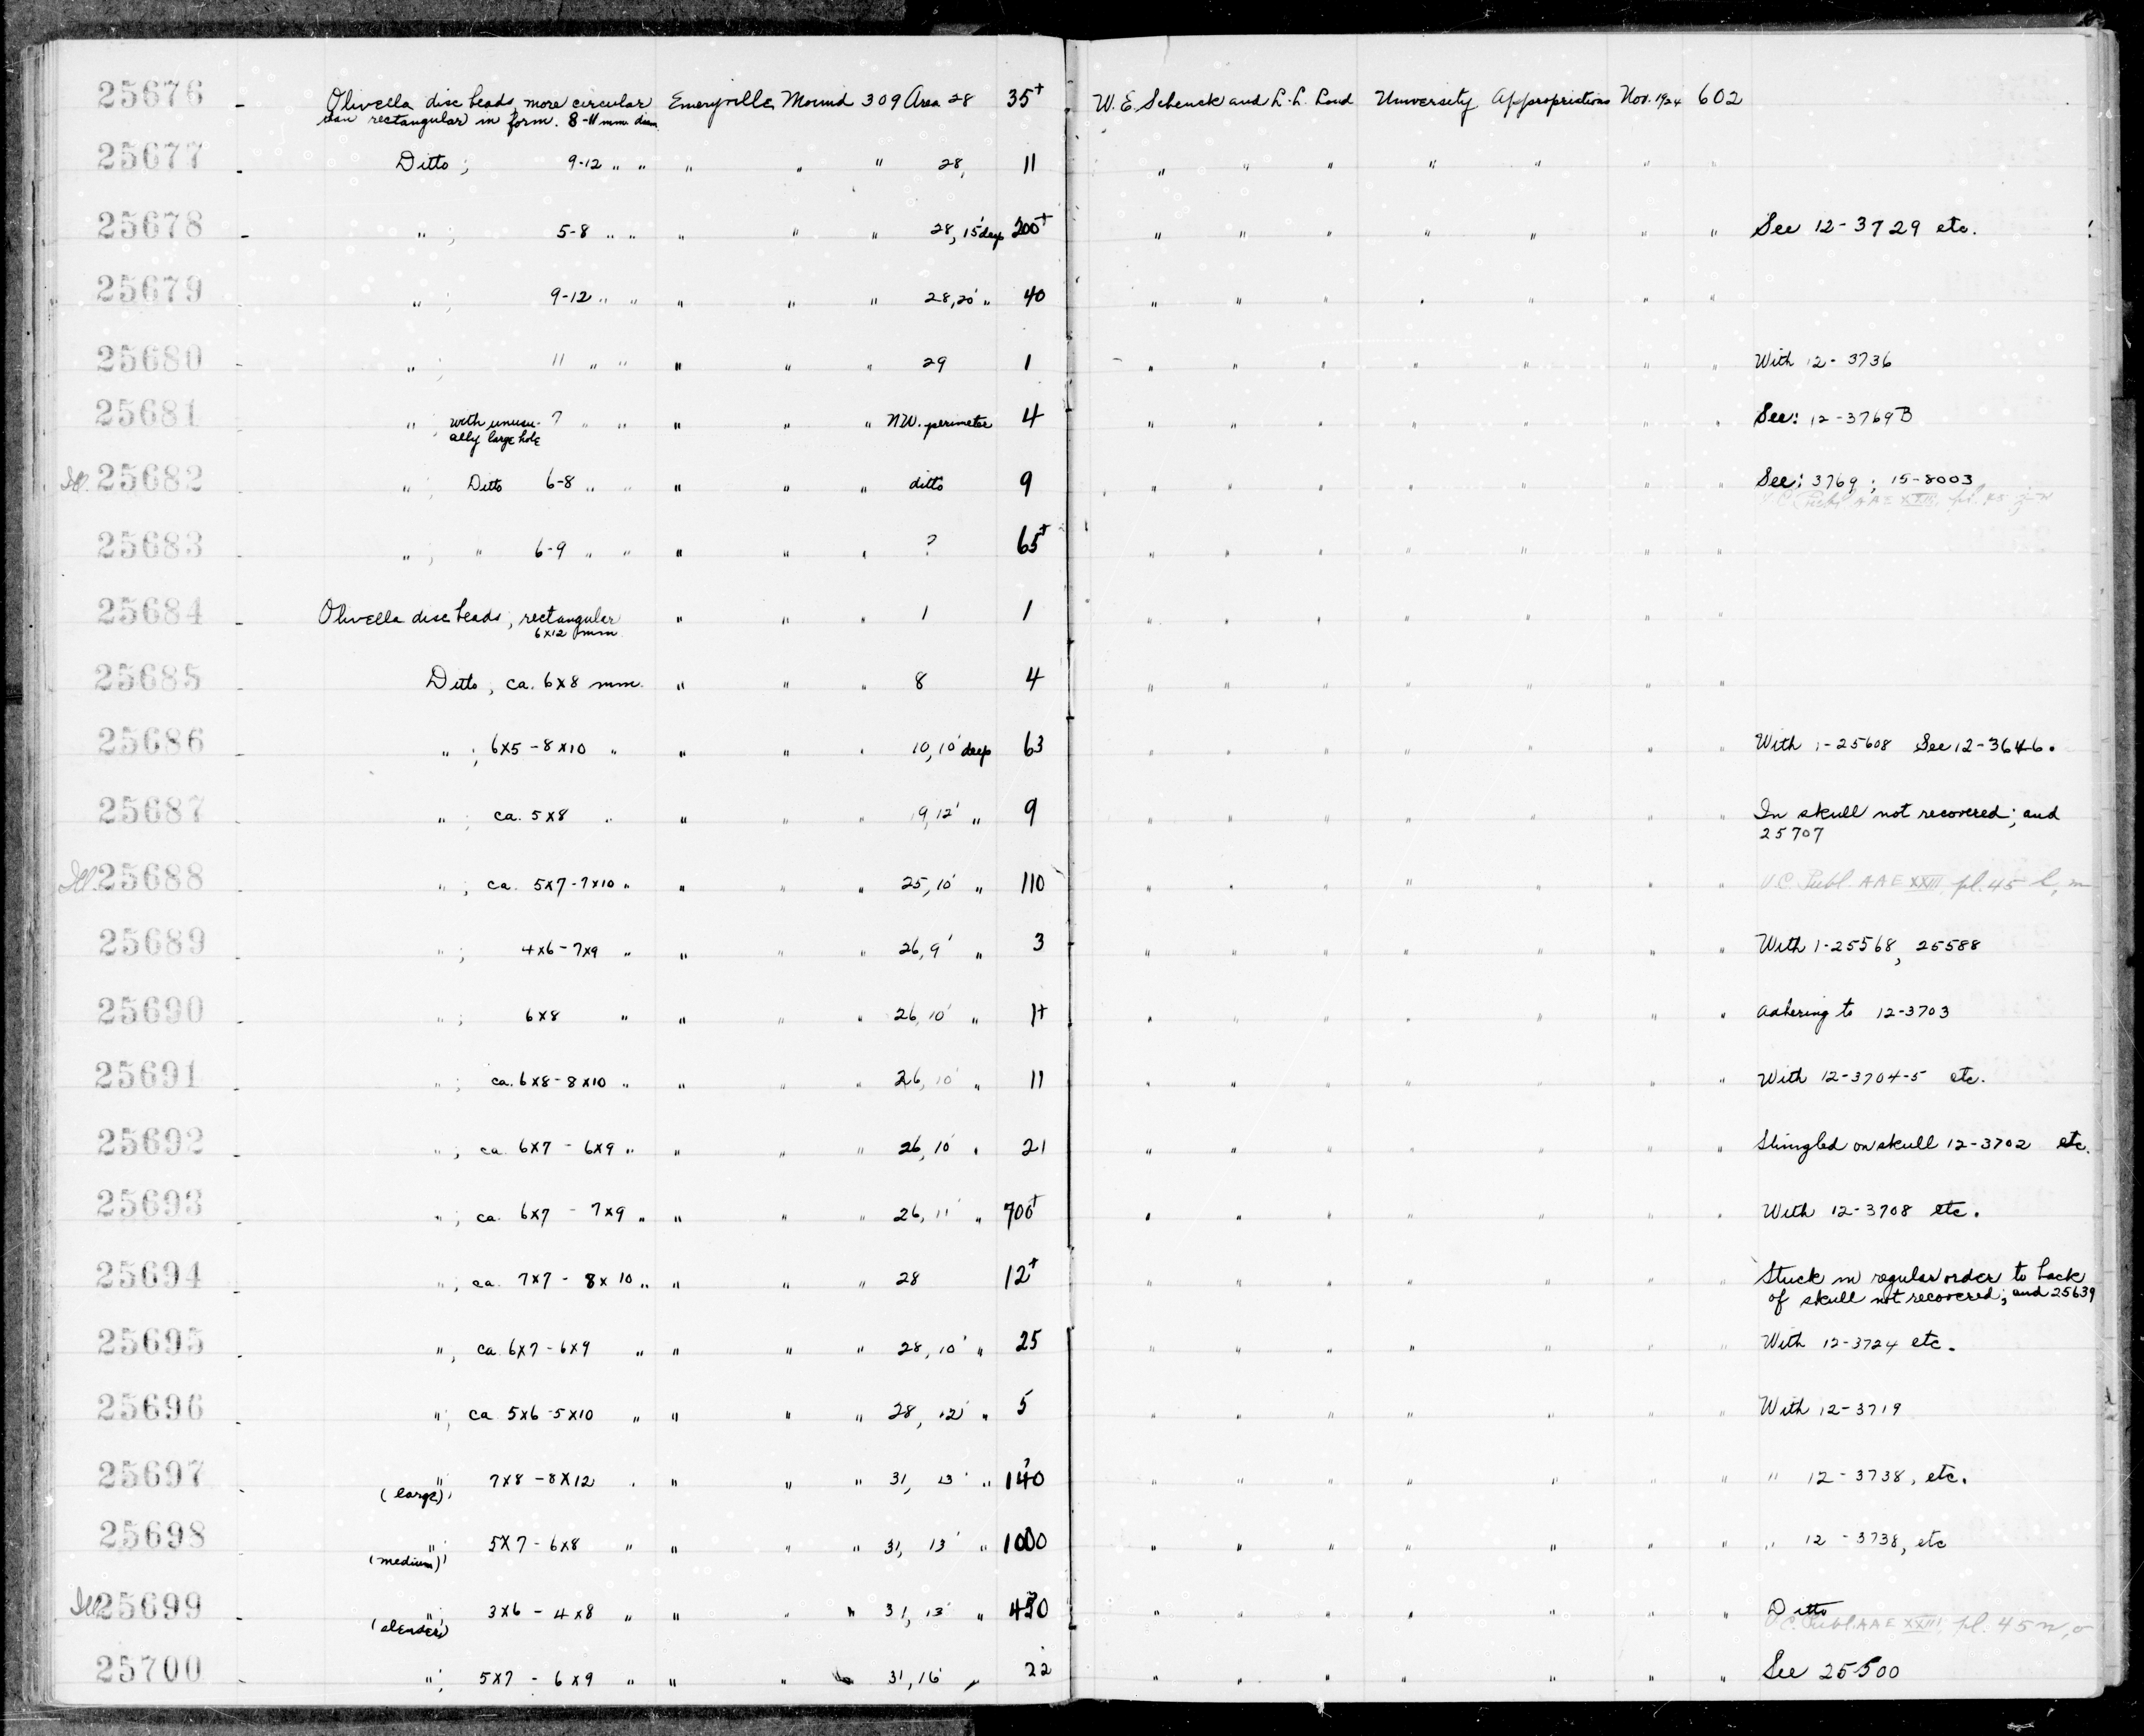 25676 - Olivella disc beads, more circular Emeryville Mound 309 Area 28 35+ W. E. Schenck and L. L. Loud University Appropriations Nov. 1924 602
than rectangular in form. 8-11 mm diam.
25677 - Ditto ; 9-12 " " " " " 28, 11 " " " " " " "
25678 - " ; 5-8 " " " " " 28, 15' deep 200+ " " " " " " " See 12-3729 etc.
25679 - " ; 9-12 " " " " " 28, 20' " 40 " " " " " " "
25680 - " ; 11 " " " " " 29 1 " " " " " " " With 12-3736
25681 - " ; with unusu- ? " " " " " NW. perimeter 4 " " " " " " " See: 12-3769B
ally large hole
Ill. 25682 - " ; Ditto 6-8 " " " " " ditto 9 " " " " " " " See: 3769 ; 15-8003
U.C. Publ. AAE XXIII, pl. 45
25683 - " ; " 6-9 " " " " " ? 65+ " " " " " " "
25684 - Olivella disc beads, rectangular " " " 1 1 " " " " " " "
6x12 mm
25685 - Ditto, ca. 6x8 mm. " " " 8 4 " " " " " " "
25686 - " ; 6x5 - 8x10 " " " " 10, 10' deep 63 " " " " " " " With 1-25608 See 12-3646.
25687 - " ; ca. 5x8 " " " " 19, 12' " 9 " " " " " " " In skull not recovered; and
25707
Ill. 25688 - " ; ca. 5x7-7x10 " " " " 25, 10' " 110 " " " " " " " U.C. Publ. AAE XXIII, pl. 45 l, m
25689 - " ; 4x6-7x9 " " " " 26, 9' " 3 " " " " " " " With 1-25568, 25588
25690 - " ; 6x8 " " " " 26, 10' " 1+ " " " " " " " Adhering to 12-3703
25691 - " ; ca. 6x8-8x10 " " " " 26, 10' " 11 " " " " " " " With 12-3704-5 etc.
25692 - " ; ca. 6x7 - 6x9 " " " " 26, 10' " 21 " " " " " " " Shingled on skull 12-3702 etc.
25693 - " ; ca. 6x7 - 7x9 " " " " 26, 11' " 700+ " " " " " " " With 12-3708 etc.
25694 - " ; ca. 7x7 - 8x10 " " " " 28 12+ " " " " " " " Stuck in regular order to back
of skull not recovered; and 25639
25695 - " ; ca. 6x7-6x9 " " " " 28, 10' " 25 " " " " " " " With 12-3724 etc.
25696 - " ; ca 5x6-5x10 " " " " 28, 12' " 5 " " " " " " " With 12-3719
25697 - " 7x8 - 8x12 " " " " 31, 13' " 140 " " " " " " " " 12-3738, etc.
(large);
25698 - " 5x7 - 6x8 " " " " 31, 13' " 1000 " " " " " " " " 12-3738, etc
(medium);
Ill. 25699 - " 3x6 - 4x8 " " " " 31, 13' " " " " " " " " Ditto
(slender); U.C. Publ. AAE XXIII, pl. 45 n, o
25700 - " ; 5x7 - 6x9 " " " " 31, 16' " 22 " " " " " " " See 25500